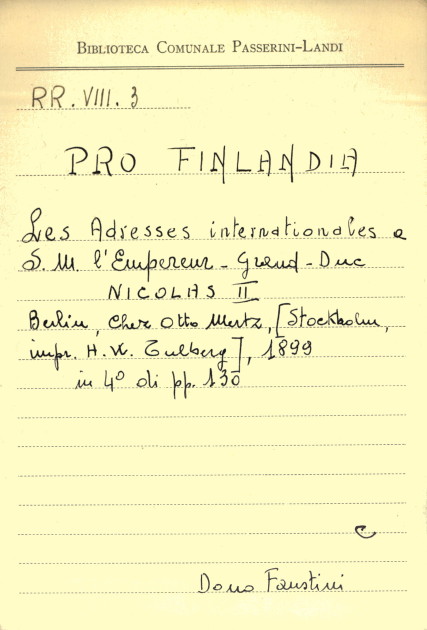 BIBLIOTECA COMUNALE PASSERINI-LANDI
RR. VIII. 3
PRO FINLANDIA
Les Adresses internationales a
S. M. l'Empereur - Grand-Duc
NICOLAS II
Berlin, chez Otto Mertz, [Stockholm,
impr. H. W. Tulberg], 1899
in 4° di pp. 130
C
Dono Faustini